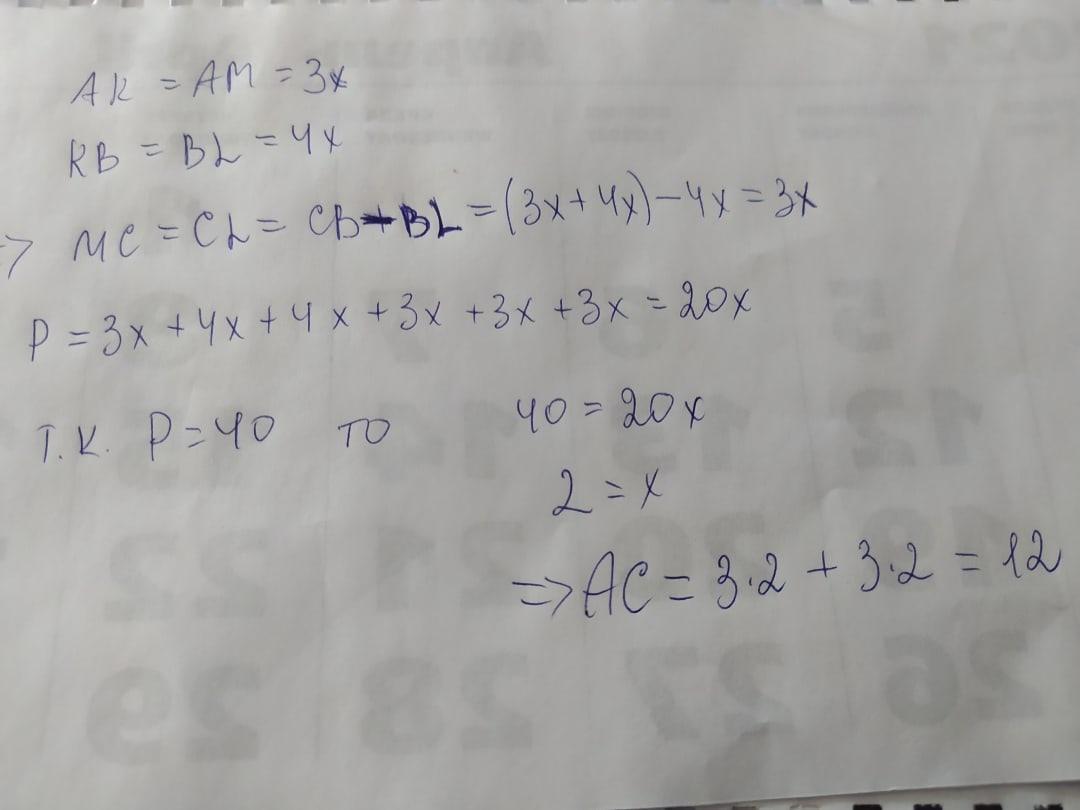 AK = AM = 3x
KB = BL = 4x
=> MC = CL = CB - BL = (3x + 4x) - 4x = 3x
P = 3x + 4x + 4x + 3x + 3x + 3x = 20x
т.к. P = 40 то 40 = 20x
2 = x
=> AC = 3·2 + 3·2 = 12